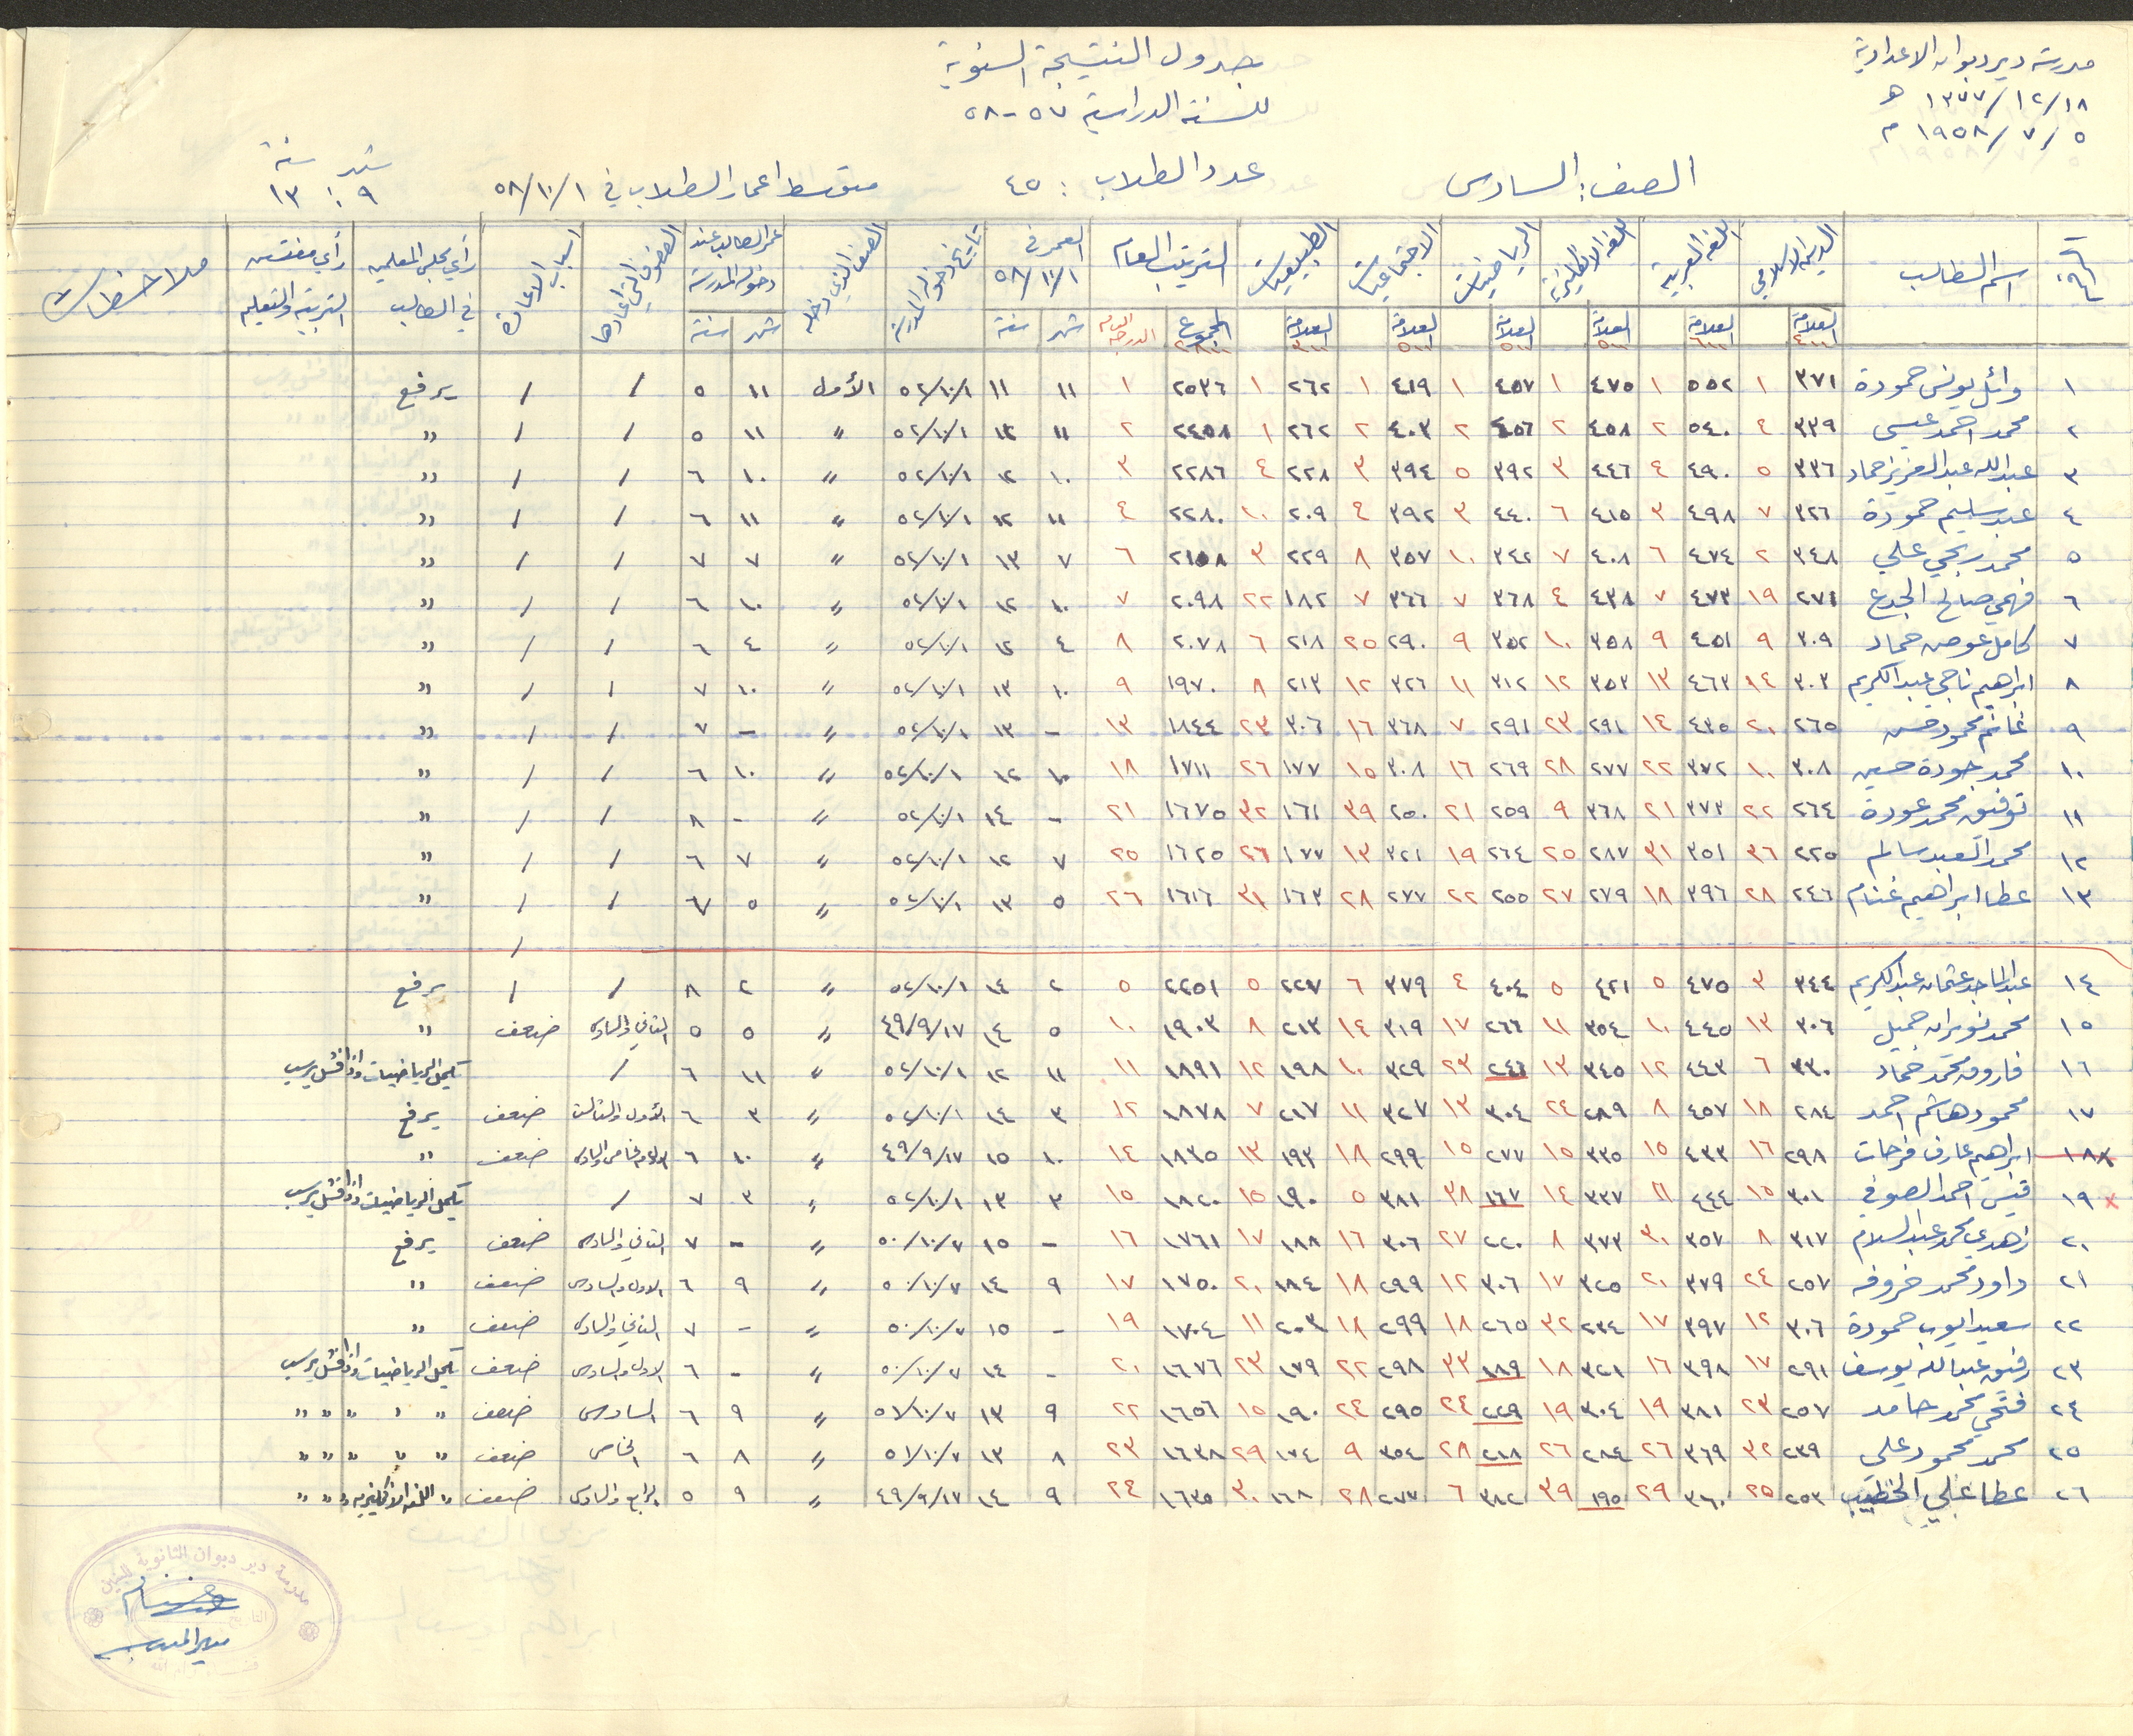 مدرسة دير ديوان الاعدادية
١٣٧٧/١٢/١٨ هـ
١٩٥٨/٧/٥ م
جدول النتيجة السنوية
للسنة الدراسية ٥٧-٥٨
الصف: السادس
عدد الطلاب: ٤٥
متوسط اعمار الطلاب في ٥٨/١٠/١
شهر سنة
٩ : ١٣
الرقم اسم الطالب الدين الاسلامي اللغة العربية اللغة الانكليزية الرياضيات الاجتماعيات الطبيعيات الترتيب العام العمر في ٥٨/١٠/١ تاريخ دخول المدرسة الصف الذي دخله عمر الطالب عند دخوله المدرسة الصفوف التي اعادها اسباب الاعادة رأي مجلس المعلمين في الطالب رأي مفتش التربية والتعليم ملاحظات
العلامة ٤٠٠ العلامة ٦٠٠ العلامة ٥٠٠ العلامة ٥٠٠ العلامة ٥٠٠ العلامة ٣٠٠ المجموع ٢٨٠٠ الدرجة العامة شهر سنة شهر سنة
١ وائل يونس حمودة ٣٧١ ١ ٥٥٢ ١ ٤٧٥ ١ ٤٥٧ ١ ٤١٩ ١ ٢٦٢ ١ ٢٥٣٦ ١ ١١ ١١ ٥٢/١٠/١ الأول ١١ ٥ / / يرفع
٢ محمد احمد عيسى ٣٣٩ ٤ ٥٤٠ ٢ ٤٥٨ ٢ ٤٥٦ ٢ ٤٠٣ ٢ ٢٦٢ ١ ٢٤٥٨ ٢ ١١ ١٢ ٥٢/١٠/١ " ١١ ٥ / / "
٣ عبدالله عبد العزيز حماد ٣٣٦ ٥ ٤٩٠ ٤ ٤٤٦ ٣ ٣٩٢ ٥ ٣٩٤ ٣ ٢٢٨ ٤ ٢٢٨٦ ٣ ١٠ ١٢ ٥٢/١٠/١ " ١٠ ٦ / / "
٤ عبد سليم حمودة ٣٢٦ ٧ ٤٩٨ ٣ ٤١٥ ٦ ٤٤٠ ٣ ٣٩٢ ٤ ٢٠٩ ١٠ ٢٢٨٠ ٤ ١١ ١٢ ٥٢/١٠/١ " ١١ ٦ / / "
٥ محمد ربحي علي ٣٤٨ ٢ ٤٧٤ ٦ ٤٠٨ ٧ ٣٤٢ ١٠ ٣٥٧ ٨ ٢٢٩ ٣ ٢١٥٨ ٦ ٧ ١٣ ٥٢/١٠/١ " ٧ ٧ / / "
٦ فهمي صالح الجدع ٢٧١ ١٩ ٤٧٣ ٧ ٤٣٨ ٤ ٣٦٨ ٧ ٣٦٦ ٧ ١٨٢ ٢٢ ٢٠٩٨ ٧ ١٠ ١٢ ٥٢/١٠/١ " ١٠ ٦ / / "
٧ كامل عوض حماد ٣٠٩ ٩ ٤٥١ ٩ ٣٥٨ ١٠ ٣٥٢ ٩ ٢٩٠ ٢٥ ٢١٨ ٦ ٢٠٧٨ ٨ ٤ ١٢ ٥٢/١٠/١ " ٤ ٦ / / "
٨ ابراهيم ناجي عبد الكريم ٣٠٣ ١٤ ٤٦٣ ١٣ ٣٥٣ ١٢ ٣١٢ ١١ ٣٢٦ ١٢ ٢١٣ ٨ ١٩٧٠ ٩ ١٠ ١٣ ٥٢/١٠/١ " ١٠ ٧ / / "
٩ غانم محمود حسن ٢٦٥ ٢٠ ٤٣٥ ١٤ ٢٩١ ٢٣ ٢٩١ ٧ ٣٦٨ ١٦ ٣٠٦ ٢٣ ١٨٤٤ ١٣ - ١٣ ٥٢/١٠/١ " - ٧ / / "
١٠ محمد جودة حسين ٣٠٨ ١٠ ٣٧٢ ٢٢ ٢٧٧ ٢٨ ٢٦٩ ١٦ ٣٠٨ ١٥ ١٧٧ ٢٦ ١٧١١ ١٨ ١٠ ١٢ ٥٢/١٠/١ " ١٠ ٦ / / "
١١ توفيق محمد عودة ٢٦٤ ٢٢ ٣٧٣ ٢١ ٣٦٨ ٩ ٢٥٩ ٢١ ٢٥٠ ٣٩ ١٦١ ٣٢ ١٦٧٥ ٢١ - ١٤ ٥٢/١٠/١ " - ٨ / / "
١٢ محمد العبد سالم ٢٢٥ ٣٦ ٣٥١ ٣١ ٢٨٧ ٢٥ ٢٦٤ ١٩ ٣٢١ ١٣ ١٧٧ ٢٦ ١٦٢٥ ٢٥ ٧ ١٢ ٥٢/١٠/١ " ٧ ٦ / / "
١٣ عطا ابراهيم غنام ٢٤٦ ٢٨ ٣٩٦ ١٨ ٢٧٩ ٢٧ ٢٥٥ ٢٢ ٢٧٧ ٢٨ ١٦٣ ٣١ ١٦١٦ ٢٦ ٥ ١٣ ٥٢/١٠/١ " ٥ ٧ / / "
/
١٤ عبد الماجد عثمان عبد الكريم ٣٤٤ ٣ ٤٧٥ ٥ ٤٢١ ٥ ٤٠٤ ٤ ٣٧٩ ٦ ٢٢٧ ٥ ٢٢٥١ ٥ ٢ ١٤ ٥٢/١٠/١ " ٢ ٨ / / يرفع
١٥ محمد نويران جميل ٣٠٦ ١٣ ٤٤٥ ١٠ ٣٥٤ ١١ ٢٦٦ ١٧ ٣١٩ ١٤ ٢١٣ ٨ ١٩٠٣ ١٠ ٥ ١٤ ٤٩/٩/١٧ " ٥ ٥ الثاني والسادس ضعف "
١٦ فاروق محمد حماد ٣٣٠ ٦ ٤٤٣ ١٢ ٣٤٥ ١٣ ٢٤٦ ٢٣ ٣٢٩ ١٠ ١٩٨ ١٢ ١٨٩١ ١١ ١١ ١٢ ٥٢/١٠/١ " ١١ ٦ / يكمل الرياضيات واذا فشل يرسب
١٧ محمود هاشم احمد ٢٨٤ ١٨ ٤٥٧ ٨ ٢٨٩ ٢٤ ٣٠٤ ١٣ ٣٢٧ ١١ ٢١٧ ٧ ١٨٧٨ ١٢ ٣ ١٤ ٥٢/١٠/١ " ٣ ٦ الأول والثالث ضعف يرفع
١٨ ابراهيم عارف فرحات ٢٩٨ ١٦ ٤٣٣ ١٥ ٣٣٥ ١٥ ٢٧٧ ١٥ ٢٩٩ ١٨ ١٩٣ ١٣ ١٨٣٥ ١٤ ١٠ ١٥ ٤٩/٩/١٧ " ١٠ ٦ ضعف "
١٩ قيس احمد الصوفي ٣٠١ ١٥ ٤٤٤ ١١ ٣٣٧ ١٤ ١٦٧ ٣٨ ٣٨١ ٥ ١٩٠ ١٥ ١٨٢٠ ١٥ ٣ ١٣ ٥٢/١٠/١ " ٣ ٧ / يكمل الرياضيات واذا فشل يرسب
٢٠ زهدي محمد عبد السلام ٣١٧ ٨ ٣٥٧ ٣٠ ٣٧٣ ٨ ٢٢٠ ٢٧ ٣٠٦ ١٦ ١٨٨ ١٧ ١٧٦١ ١٦ - ١٥ ٥٠/١٠/٧ " - ٧ الثاني والسادس ضعف يرفع
٢١ داود محمد خروفه ٢٥٧ ٢٤ ٣٧٩ ٢٠ ٣٢٥ ١٧ ٣٠٦ ١٢ ٢٩٩ ١٨ ١٨٤ ٢٠ ١٧٥٠ ١٧ ٩ ١٤ ٥٠/١٠/٧ " ٩ ٦ الاول والسادس ضعف "
٢٢ سعيد ايوب حمودة ٣٠٦ ١٢ ٣٩٧ ١٧ ٢٣٤ ٣٢ ٢٦٥ ١٨ ٢٩٩ ١٨ ٢٠٣ ١١ ١٧٠٤ ١٩ - ١٥ ٥٠/١٠/٧ " - ٧ الثاني والسادس ضعف "
٢٣ رفيق عبدالله يوسف ٢٩١ ١٧ ٣٩٨ ١٦ ٣٢١ ١٨ ١٨٩ ٣٣ ٢٩٨ ٢٢ ١٧٩ ٢٣ ١٦٧٦ ٢٠ - ١٤ ٥٠/١٠/٧ " - ٦ الاول والسادس ضعف يكمل الرياضيات واذا فشل يرسب
٢٤ فتحي محمد حامد ٢٥٧ ٢٣ ٣٨١ ١٩ ٣٠٤ ١٩ ٢٢٩ ٢٤ ٢٩٥ ٢٤ ١٩٠ ١٥ ١٦٥٦ ٢٢ ٩ ١٣ ٥١/١٠/٧ " ٩ ٦ السادس ضعف " " " " "
٢٥ محمد محمود علي ٢٣٩ ٣٢ ٣٦٩ ٢٦ ٢٨٤ ٢٦ ٢١٨ ٢٨ ٣٥٤ ٩ ١٧٤ ٢٩ ١٦٣٨ ٢٣ ٨ ١٣ ٥١/١٠/٧ " ٨ ٦ الخامس ضعف " " " " "
٢٦ عطا علي الخطيب ٢٥٣ ٢٥ ٣٦٠ ٢٩ ١٩٥ ٣٩ ٣٨٢ ٦ ٢٧٧ ٢٨ ١٦٨ ٣٠ ١٦٣٥ ٢٤ ٩ ١٤ ٤٩/٩/١٧ " ٩ ٥ الرابع والسادس ضعف " اللغة الانكليزية " " "
مدرسة دير ديوان الثانوية للبنين
التاريخ
مدير المدرسة